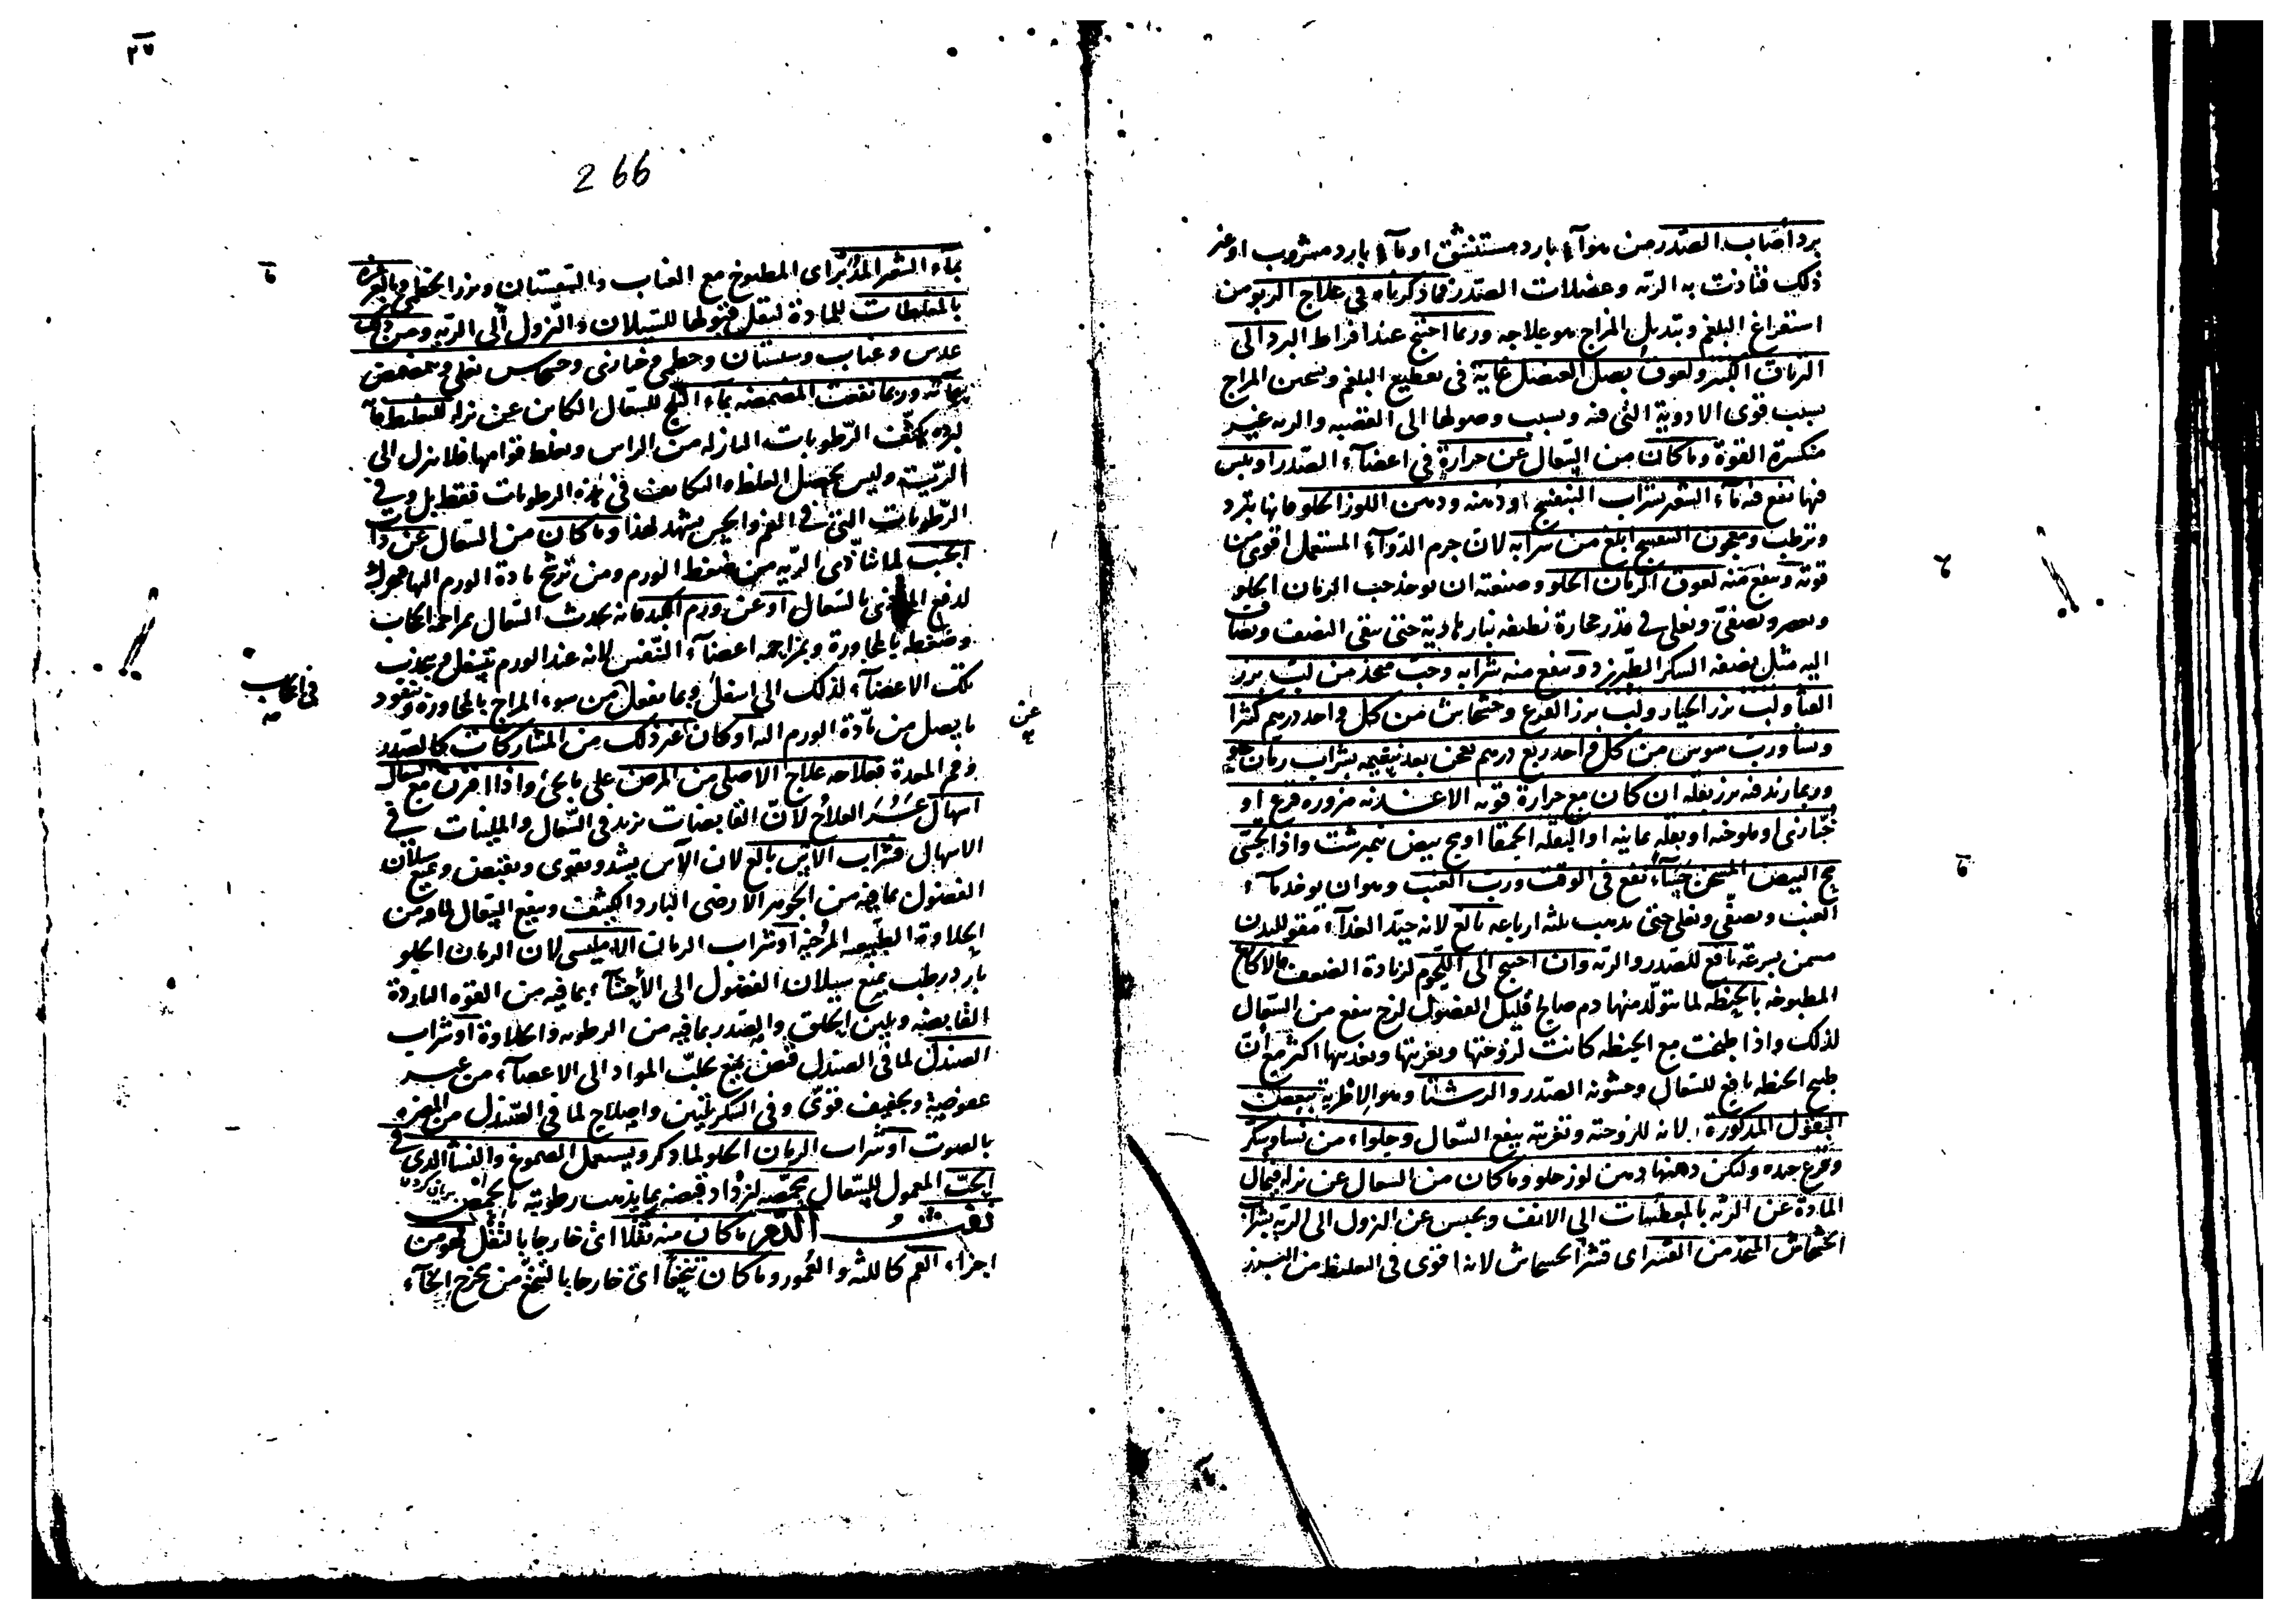 برد أصاب الصدر من هوآء بارد مستنشق او مآء بارد مشروب او غير
ذلك فتأذت به الرئه وعضلات الصدر فما ذكرناه في علاج الربو من
استفراغ البلغم وتبديل المزاج هو علاجه وربما احتيج عند افراط البرد الى
الترياق الكبير ولعوق بصل العنصل غاية في تقطيع البلغم وتسخين المزاج
بسبب قوى الادوية التى فيه وبسبب وصولها الى القصبه والريه غير
منكسرة القوة وما كان من السعال عن حرارة في اعضآء الصدر او يبس
فيها نفع فيه مآء الشعير بشراب البنفسج او دهنه ودهن اللوز الحلو فانها تبرد
وترطب ومعجون البنفسج ابلغ من شرابه لان جرم الدوآء المستعمل اقوى من
قوته وينفع منه لعوق الرمان الحلو وصنعته ان يوخذ حب الرمان الحلو
ويعصر ويصفى ويغلى في قدر حجارة نظيفه بنار هادية حتى يبقى النصف ويضاف
اليه مثل نصفه السكر الطبرزد وينفع منه شرابه وحب متخذ من لب بزر
القثا ولب بزر الخيار ولب بزر القرع وخشخاش من كل واحد درهم كثيرا
ونشا ورب سوس من كل واحد ربع درهم يعجن بعد تنعيمه بشراب رمان حلو
وربما زيد فيه بزر بقله ان كان مع حرارة قويه الاغذيه مزوره قرع او
خبازى او ملوخيه او بقله يمانيه او البقله الحمقا او مح بيض نيمرشت واذا تحسى
مح البيض المسخن حسآء نفع في الوقت ورب العنب وهو ان يوخذ مآء
العنب ويصفى ويغلى حتى يذهب ثلثه ارباعه بالغ لانه جيد الغذآء مقو للبدن
مسمن بسرعة نافع للصدر والريه وان احتيج الى اللحوم لزيادة الضعف فالاكارع
المطبوخه بالحنطه لما يتولد منها دم صالح قليل الفضول لزج ينفع من السعال
لذلك واذا طبخت مع الحنطه كانت لزوجتها وتغريتها وتغذيتها اكثر مع أن
طبيخ الحنطه نافع للسعال وخشونه الصدر والرشتا وهو الاطرية ببعض
البقول المذكورة لانه للزوجته وتغريته ينفع السعال وحلواء من نشا وسكر
وقرع جيده وليكن دهنها دهن لوز حلو وما كان من السعال عن نزله فيمال
المادة عن الريه بالمعطسات الى الانف ويحبس عن النزول الى الريه بشراب
الخشخاش المتخذ من القشر اى قشر الخشخاش لانه اقوى في التغليظ من البزر
٢٧
266
بمآء الشعير المدبر اى المطبوخ مع العناب والسبستان وبزر الخطمى وبالغرغره
بالمغلظات للمادة ليقل قبولها للسيلان والنزول الى الريه ومن ذلك
عدس وعناب وسبستان وخطمى وخبازى وخشخاش يغلى ويتمضمض
بمآئه وربما نفعت المضمضه بمآء الثلج للسعال الكاين عن نزله لتغليظ مآئه
لبرده يكثف الرطوبات النازله من الراس ويغلظ قوامها فلا ينزل الى
الريه وليس يحصل الغلظ والتكاثف في هذه الرطوبات فقط بل وفي
الرطوبات التى في الفم والحس يشهد لهذا وما كان من السعال عن ذات
الجنب لما تتأذى الريه من ضغط الورم ومن ترشح مادة الورم اليها فيحرك
لدفع الموذى بالسعال او عن ورم الكبد فانه يحدث السعال بمزاحمه الحجاب
وضغطه بالمجاورة وبمزاحمه اعضآء التنفس لانه عند الورم يثقل ويجذب
تلك الاعضآء لذلك الى اسفل وبما يفعل من سوء المزاج بالمجاورة ونفوذ
ما يصل من مادة الورم اليه او كان عن غير ذلك من المشاركات كالصدر
وفم المعدة فعلاجه علاج الاصلى من المرض على ما يجئ واذا اقترن مع السعال
اسهال عسر العلاج لان القابضات تزيد في السعال والملينات في
الاسهال فشراب الآس بالغ لان الآس يشد ويقوى ويقبض ويمنع سيلان
الفضول بما فيه من الجوهر الارضى البارد الكثيف وينفع السعال لما فيه من
الحلاوة الطبيعيه المرخيه او شراب الرمان الامليسى لان الرمان الحلو
بارد رطب يمنع سيلان الفضول الى الأحشآء بما فيه من القوه الباردة
القابضه ويلين الحلق والصدر بما فيه من الرطوبه والحلاوة او شراب
الصندل لما في الصندل قبض يمنع تحلب المواد الى الاعضآء من غير
عفوصية وتجفيف قوى وفي السكر تليين واصلاح لما في الصندل من المضره
بالصوت او شراب الرمان الحلو لما ذكر ويستعمل الصموغ والنشا الذى في
الحب المعمول للسعال محمصه لتزداد قبضه بما يذهب رطوبته بالتحميص
نفث الدم ما كان منه تفلا اى خارجا بالتفل فهو من
اجزاء الفم كاللثه والعمور وما كان تنخعا اى خارجا بالتنخع من مخرج الخآء
في الحجاب
عن